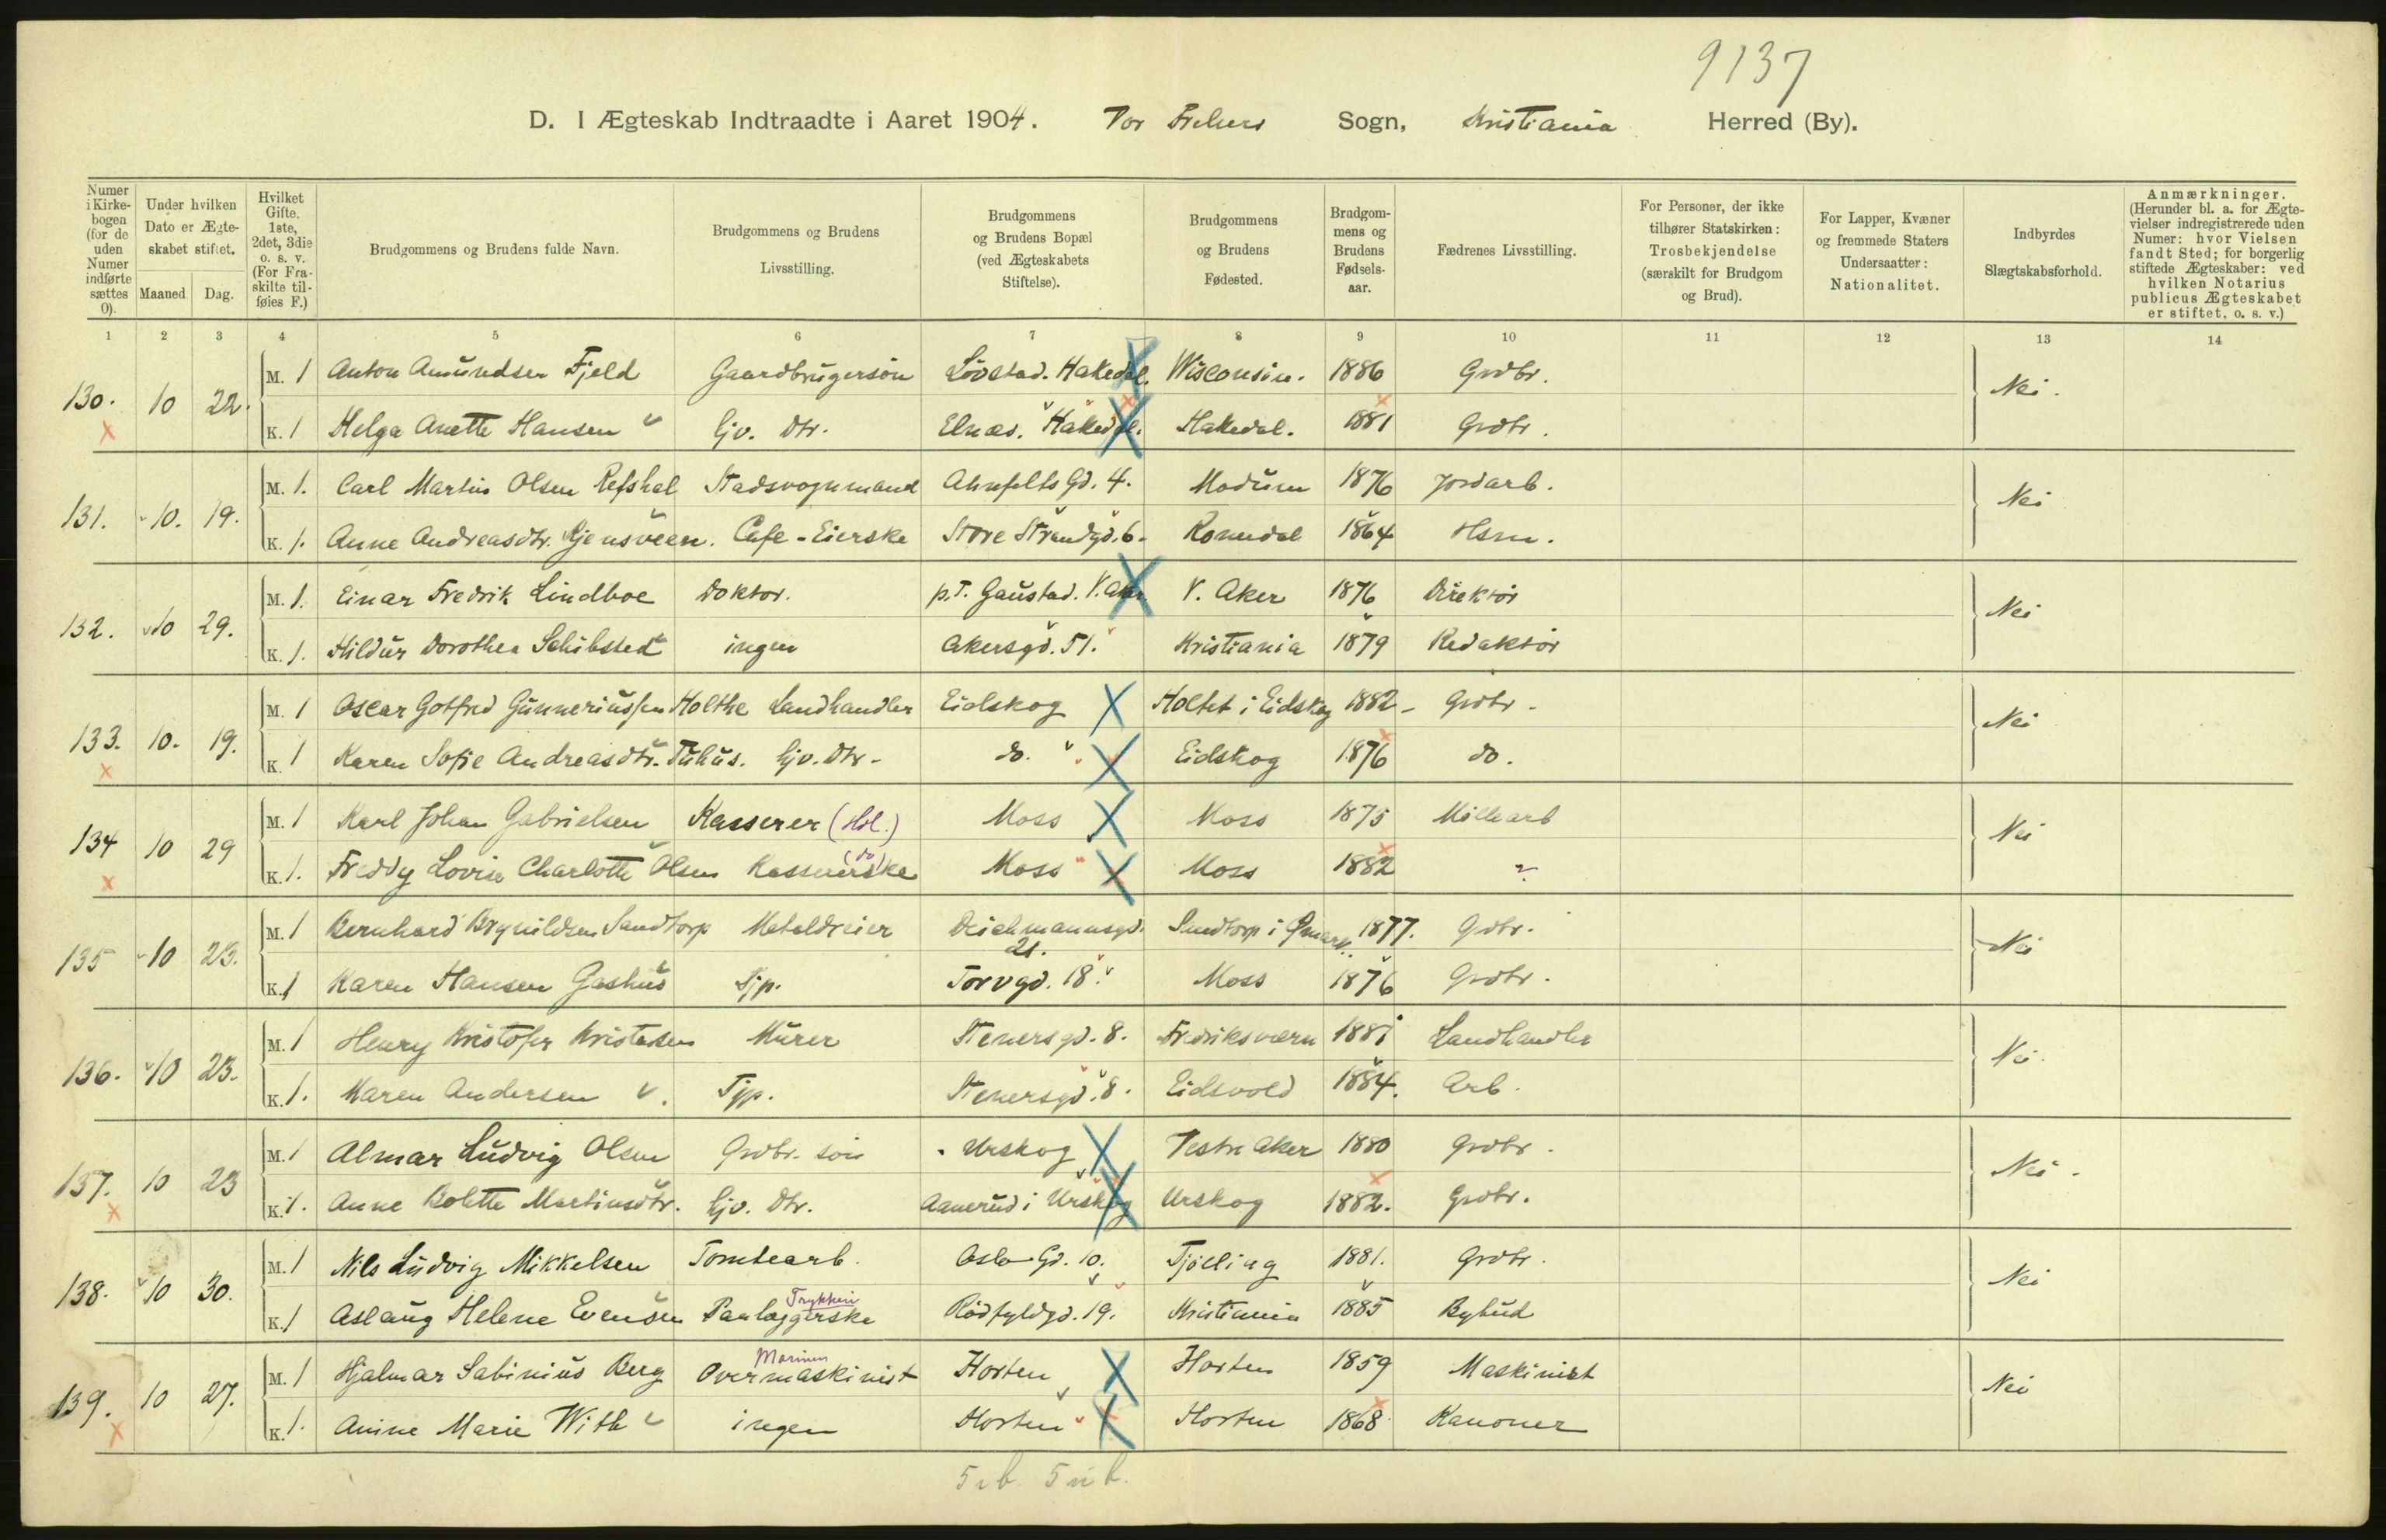 9137
D. I Ægteskab Indtraadte i Aaret 1904. Vor Frelsers Sogn, Kristiania Herred (By).
Numer i Kirkebogen (for de uden Numer indførte sættes 0).
Under hvilken Dato er Ægteskabet stiftet. Maaned Dag.
Hvilket Gifte. 1ste, 2det, 3die o. s. v. (For Fraskilte tilføies F.)
Brudgommens og Brudens fulde Navn.
Brudgommens og Brudens Livsstilling.
Brudgommens og Brudens Bopæl (ved Ægteskabets Stiftelse).
Brudgommens og Brudens Fødested.
Brudgommens og Brudens Fødselsaar.
Fædrenes Livsstilling.
For Personer, der ikke tilhører Statskirken: Trosbekjendelse (særskilt for Brudgom og Brud).
For Lapper, Kvæner og fremmede Staters Undersaatter: Nationalitet.
Indbyrdes Slægtskabsforhold.
Anmærkninger. (Herunder bl. a. for Ægtevielser indregistrerede uden Numer: hvor Vielsen fandt Sted; for borgerlig stiftede Ægteskaber: ved hvilken Notarius publicus Ægteskabet er stiftet, o. s. v.)
1 2 3 4 5 6 7 8 9 10 11 12 13 14
130. 10 22. M. 1 Anton Amundsen Fjeld Gaardbrugersøn Løvstad. Hakedal. Wisconsin. 1886 Grdbr. Nei.
K. 1 Helga Anette Hansen hjv. Dtr. Elnæs. Hakedal. Hakedal. 1881 Grdbr.
131. 10. 19. M. 1. Carl Martin Olsen Refshal Stadsvognmand Ahnfelts Gd. 4. Modum 1876 Jordarb. Nei
K. 1. Anne Andreasdtr. Gjensveen. Cafe-Eierske Store Strandgd. 6. Romedal 1864 Hsm.
132. 10 29. M. 1. Einar Fredrik Lindboe Doktor. p.T. Gaustad. V. Aker V. Aker 1876 Direktør Nei
K. 1. Hildur Dorothea Schibsted ingen Akersgd. 51. Kristiania 1879 Redaktør
133. 10. 19. M. 1 Oscar Gotfred Gunneriussen Holthe Landhandler Eidskog Holtet i Eidskog 1882 Grdbr. Nei
K. 1 Karen Sofie Andreasdtr. Tuhus. hjv. Dtr. do. Eidskog 1876 do.
134 10 29 M. 1 Karl Johan Gabrielsen Kasserer (Hdl.) Moss Moss 1875 Møllearb Nei
K. 1. Freddy Lovise Charlotte Olsen Kassererske (do) Moss Moss 1882 ?
135 10 23. M. 1 Bernhard Brynildsen Sandtorp Metaldreier Deichmannsgd. 21. Sandtorp i Ømark. 1877. Gdbr. Nei
K. 1 Karen Hansen Gashus Tjp. Torvgd. 18. Moss 1876 Grdbr.
136. 10 23. M. 1 Henry Kristofer Kristensen Murer Stenersgd. 8. Fredriksværn 1881 Landhandler Nei
K. 1. Maren Andersen Tjp. Stenersgd. 8. Eidsvold 1884. Arb.
137. 10 23 M. 1 Almar Ludvig Olsen Grdbr. søn Urskog Vestre Aker 1880 Grdbr. Nei
K. 1. Anne Bolette Martinsdtr. hjv. Dtr. Aanerud i Urskog Urskog 1882. Grdbr.
138. 10 30. M. 1 Nils Ludvig Mikkelsen Tomtearb. Oslo Gd. 10. Tjølling 1881. Grdbr. Nei
K. 1 Aslaug Helene Evensen Paalæggerske Trykkeri Rødfyldgd. 19. Kristiania 1885 Bybud
139. 10 27. M. 1 Hjalmar Sabinius Berg Overmaskinist Marinen Horten Horten 1859 Maskinist Nei
K. 1. Anine Marie With ingen Horten Horten 1868 Kanoner